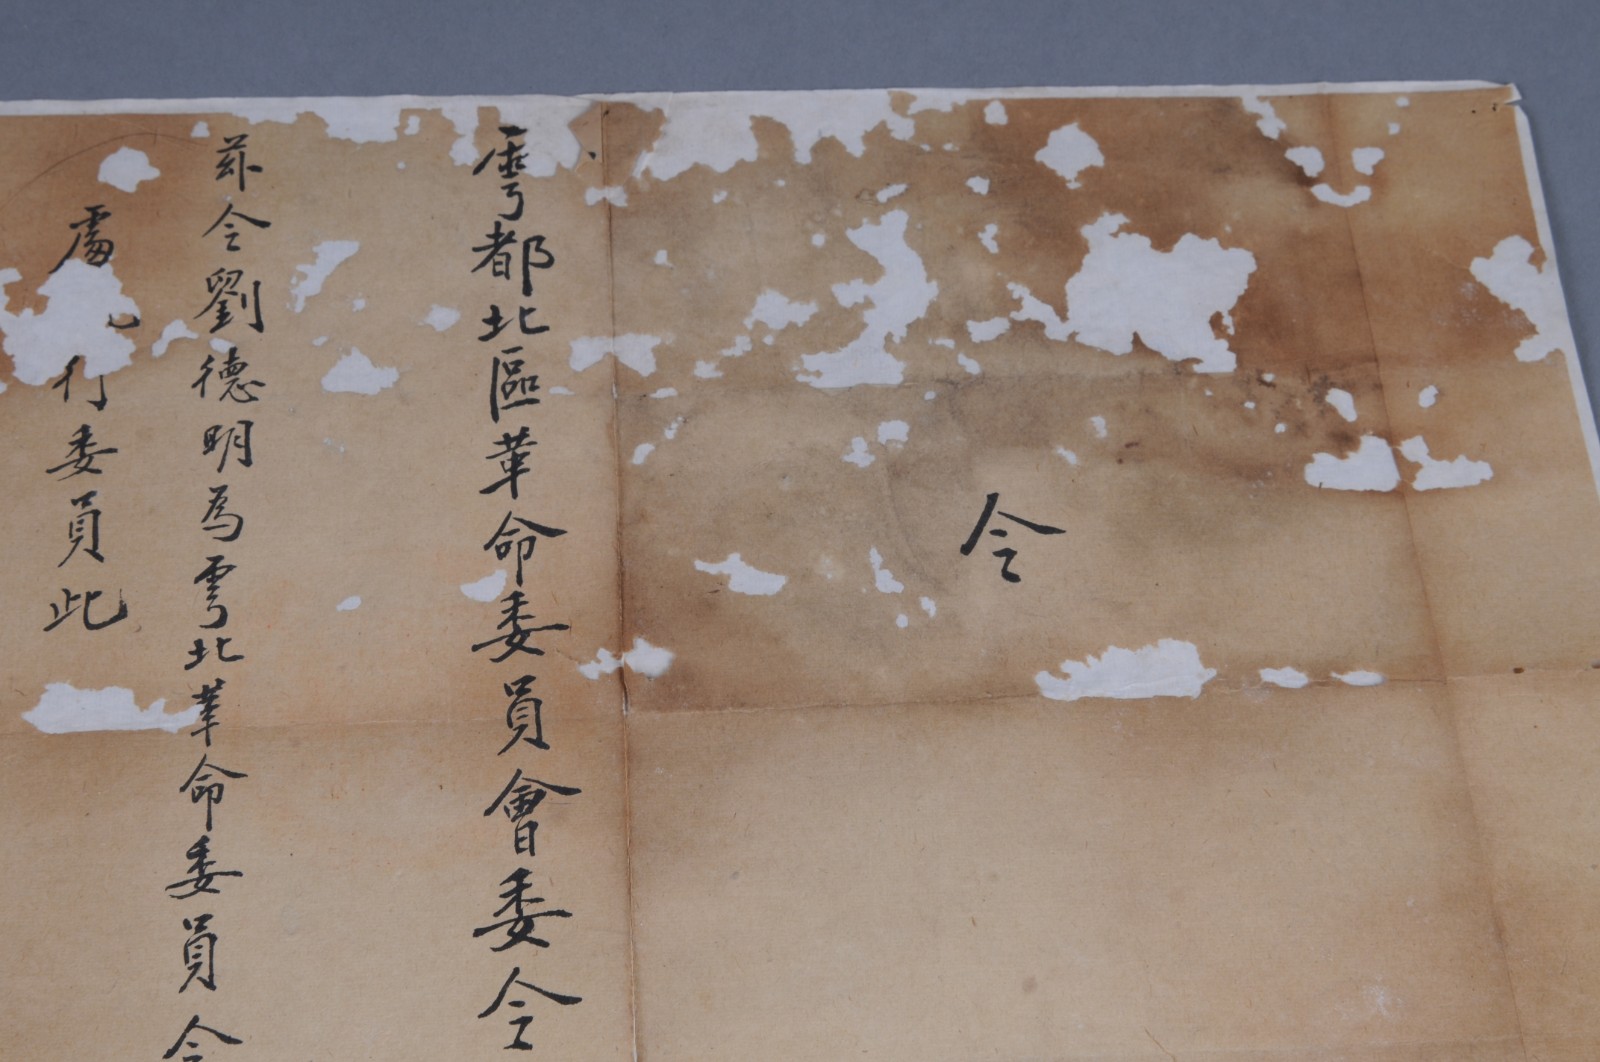 令
雩都北區革命委員會委令
茲令劉德明為雩北革命委員會
處 行委員此